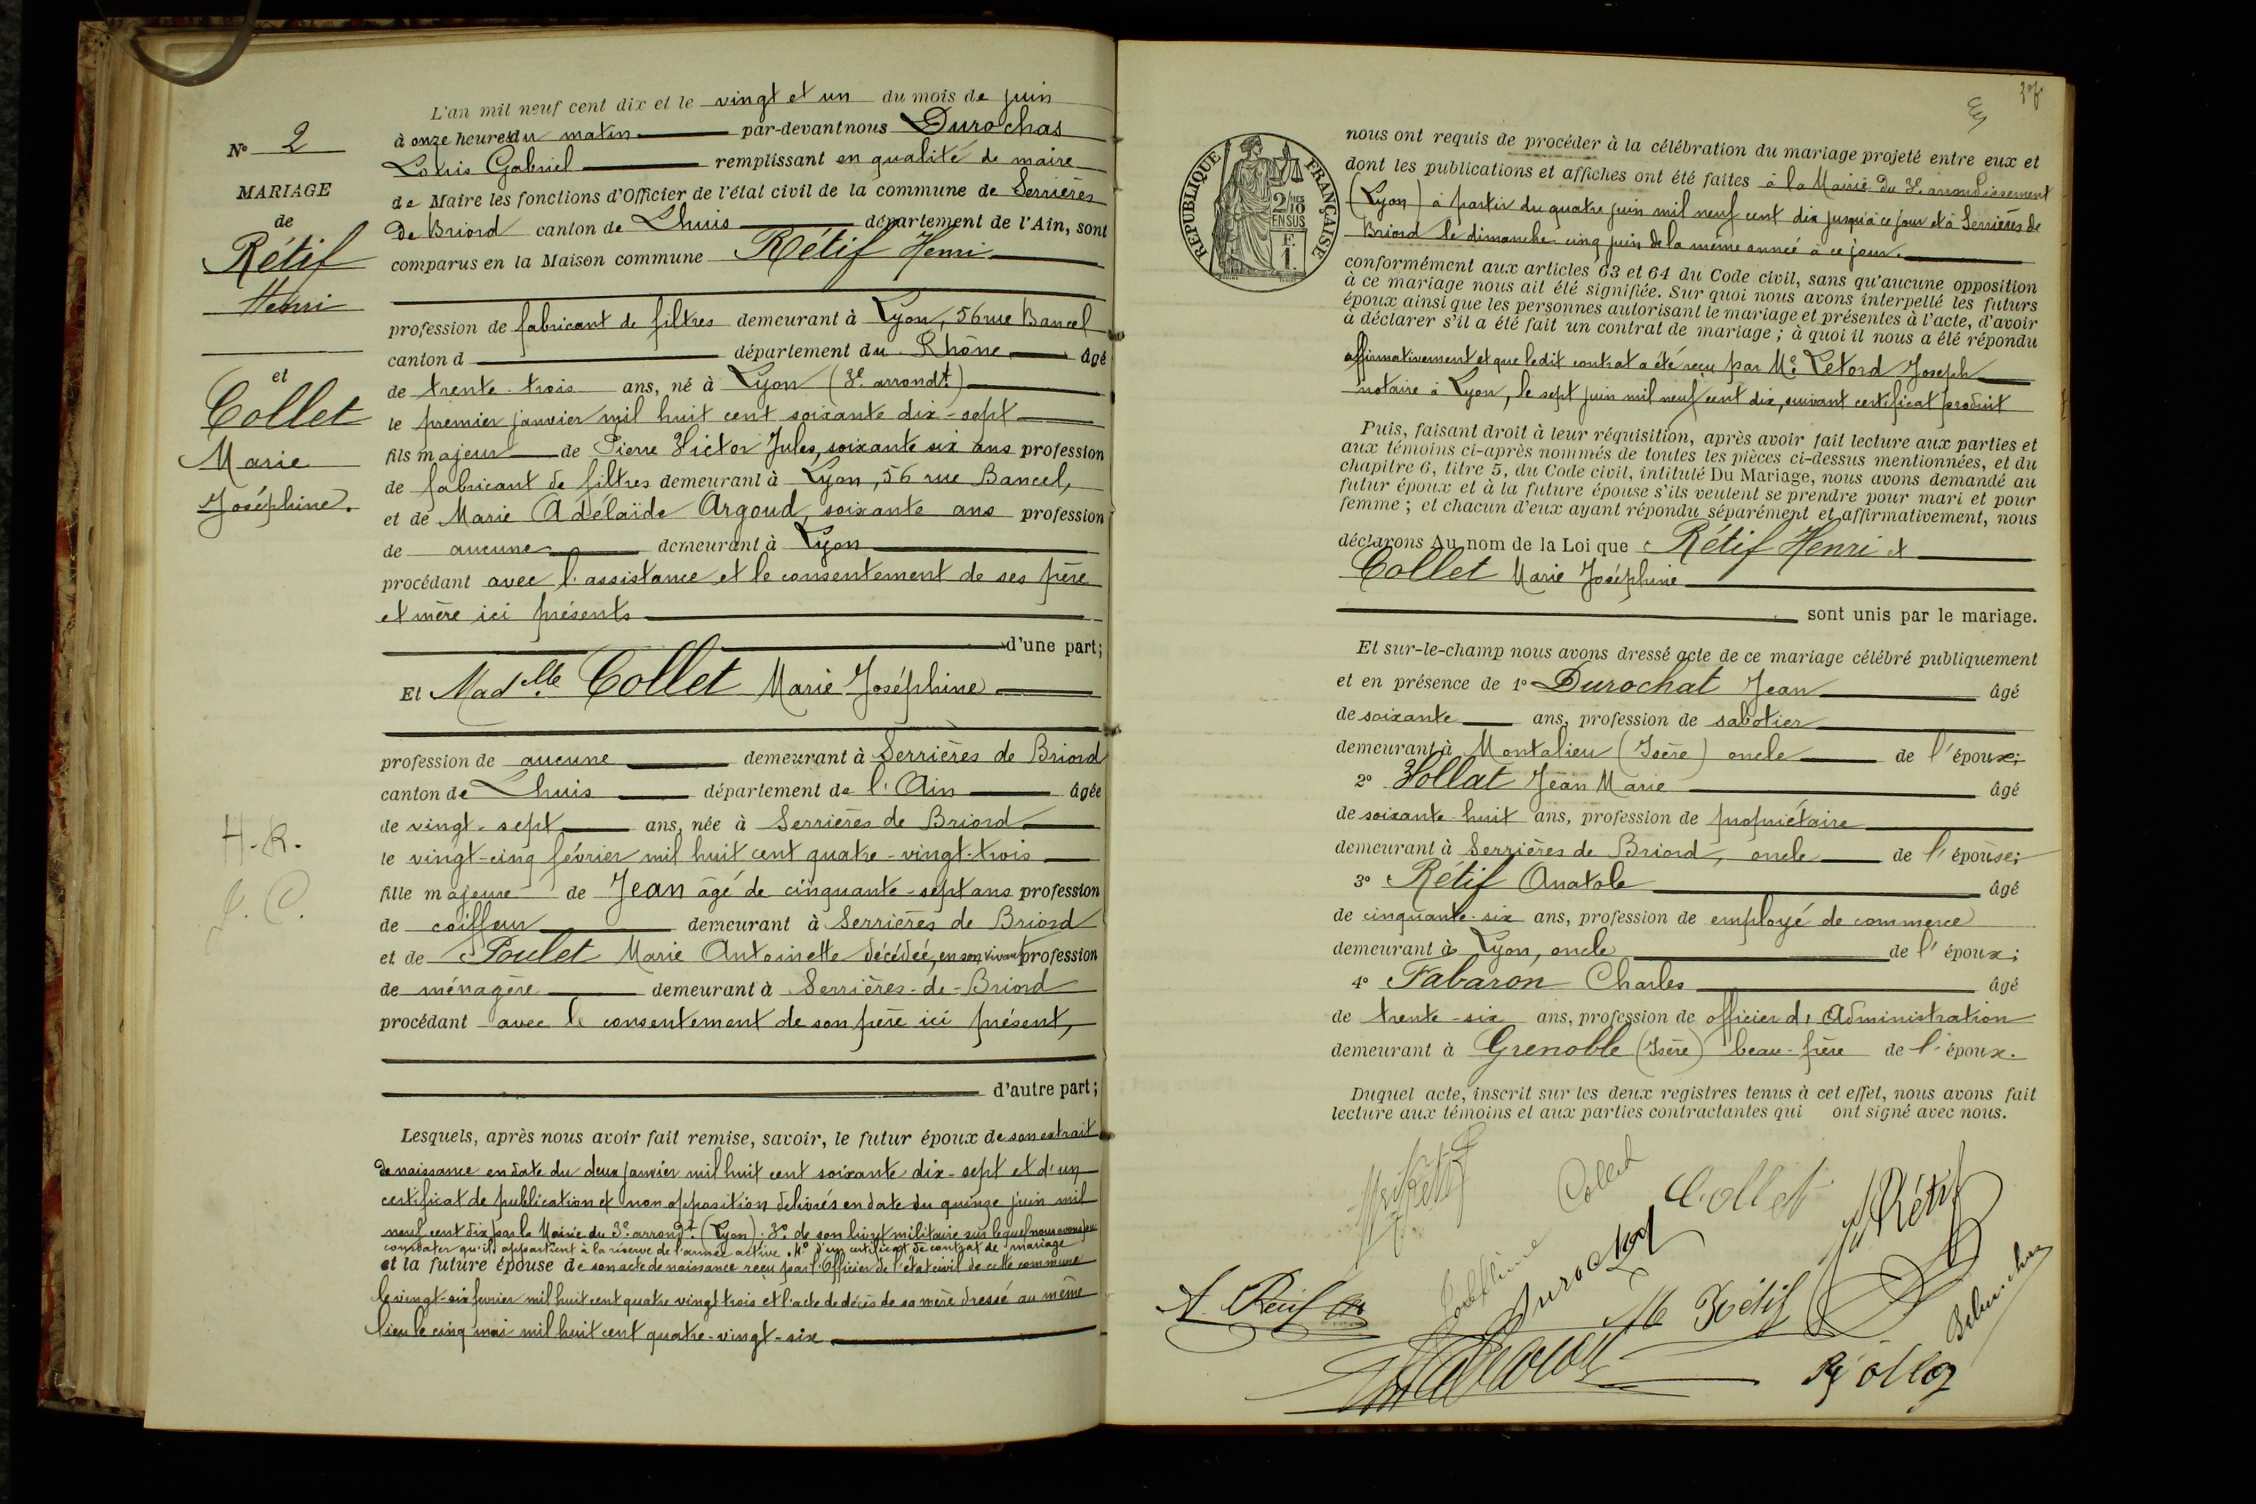 L'an mil neuf cent dix et le vingt et un du mois de juin
à onze heures du matin par-devant nous Durochas
Louis Gabriel remplissant en qualité de maire
de Maire les fonctions d'Officier de l'état civil de la commune de Serrières
de Briord canton de Lhuis département de l'Ain, sont
comparus en la Maison commune Rétif Henri
profession de fabricant de filtres demeurant à Lyon, 56 rue Bancel
canton d département du Rhône âgé
de trente-trois ans, né à Lyon (3e arrondt)
le premier janvier mil huit cent soixante dix-sept
fils majeur de Pierre Victor Jules, soixante six ans profession
de fabricant de filtres demeurant à Lyon, 56 rue Bancel,
et de Marie Adélaïde Argoud, soixante ans profession
de aucune demeurant à Lyon
procédant avec l'assistance et le consentement de ses père
et mère ici présents
d'une part;
Et Madelle Collet Marie Joséphine
profession de aucune demeurant à Serrières de Briord
canton de Lhuis département de l'Ain âgée
de vingt-sept ans, née à Serrières de Briord
le vingt-cinq février mil huit cent quatre-vingt-trois
fille majeure de Jean âgé de cinquante-sept ans profession
de coiffeur demeurant à Serrières de Briord
et de Poulet Marie Antoinette décédée, en son vivant profession
de ménagère demeurant à Serrières-de-Briord
procédant avec le consentement de son père ici présent,
d'autre part;
Lesquels, après nous avoir fait remise, savoir, le futur époux de son extrait
de naissance en date du deux janvier mil huit cent soixante dix-sept et d'un
certificat de publication et non opposition délivrés en date du quinze juin mil
neuf cent dix par la Mairie du 3e arrondt (Lyon). 3o de son livret militaire sur lequel nous avons pu
constater qu'il appartient à la réserve de l'armée active. 4o d'un certificat de contrat de mariage
et la future épouse de son acte de naissance reçu par l'Officier de l'état civil de cette commune
le vingt-six février mil huit cent quatre vingt trois et l'acte de décès de sa mère dressé au même
lieu le cinq mai mil huit cent quatre-vingt-six
No 2
MARIAGE
de
Rétif
Henri
et
Collet
Marie
Joséphine.
H. R.
J. C.
RÉPUBLIQUE FRANÇAISE
2/10
EN SUS
F.
1.
nous ont requis de procéder à la célébration du mariage projeté entre eux et
dont les publications et affiches ont été faites à la Mairie du 3e arrondissement
(Lyon) à partir du quatre juin mil neuf cent dix jusqu'à ce jour et à Serrières de
Briord le dimanche cinq juin de la même année à ce jour.
conformément aux articles 63 et 64 du Code civil, sans qu'aucune opposition
à ce mariage nous ait été signifiée. Sur quoi nous avons interpellé les futurs
époux ainsi que les personnes autorisant le mariage et présentes à l'acte, d'avoir
à déclarer s'il a été fait un contrat de mariage; à quoi il nous a été répondu
affirmativement et que ledit contrat a été reçu par Me Letord Joseph
notaire à Lyon, le sept juin mil neuf cent dix, suivant certificat produit
Puis, faisant droit à leur réquisition, après avoir fait lecture aux parties et
aux témoins ci-après nommés de toutes les pièces ci-dessus mentionnées, et du
chapitre 6, titre 5, du Code civil, intitulé Du Mariage, nous avons demandé au
futur époux et à la future épouse s'ils veulent se prendre pour mari et pour
femme; et chacun d'eux ayant répondu séparément et affirmativement, nous
déclarons Au nom de la Loi que Rétif Henri et
Collet Marie Joséphine
sont unis par le mariage.
Et sur-le-champ nous avons dressé acte de ce mariage célébré publiquement
et en présence de 1o Durochat Jean âgé
de soixante ans, profession de sabotier
demeurant à Montalieu (Isère) oncle de l'époux;
2o Vollat Jean Marie âgé
de soixante-huit ans, profession de propriétaire
demeurant à Serrières de Briord, oncle de l'épouse;
3o Rétif Anatole âgé
de cinquante-six ans, profession de employé de commerce
demeurant à Lyon, oncle de l'époux;
4o Fabaron Charles âgé
de trente-six ans, profession de officier d'Administration
demeurant à Grenoble (Isère) beau-frère de l'époux.
Duquel acte, inscrit sur les deux registres tenus à cet effet, nous avons fait
lecture aux témoins et aux parties contractantes qui ont signé avec nous.
Collet
Collet
Rétif
Joséphine
Durochat
M Rétif
A. Rétif
Fabaron